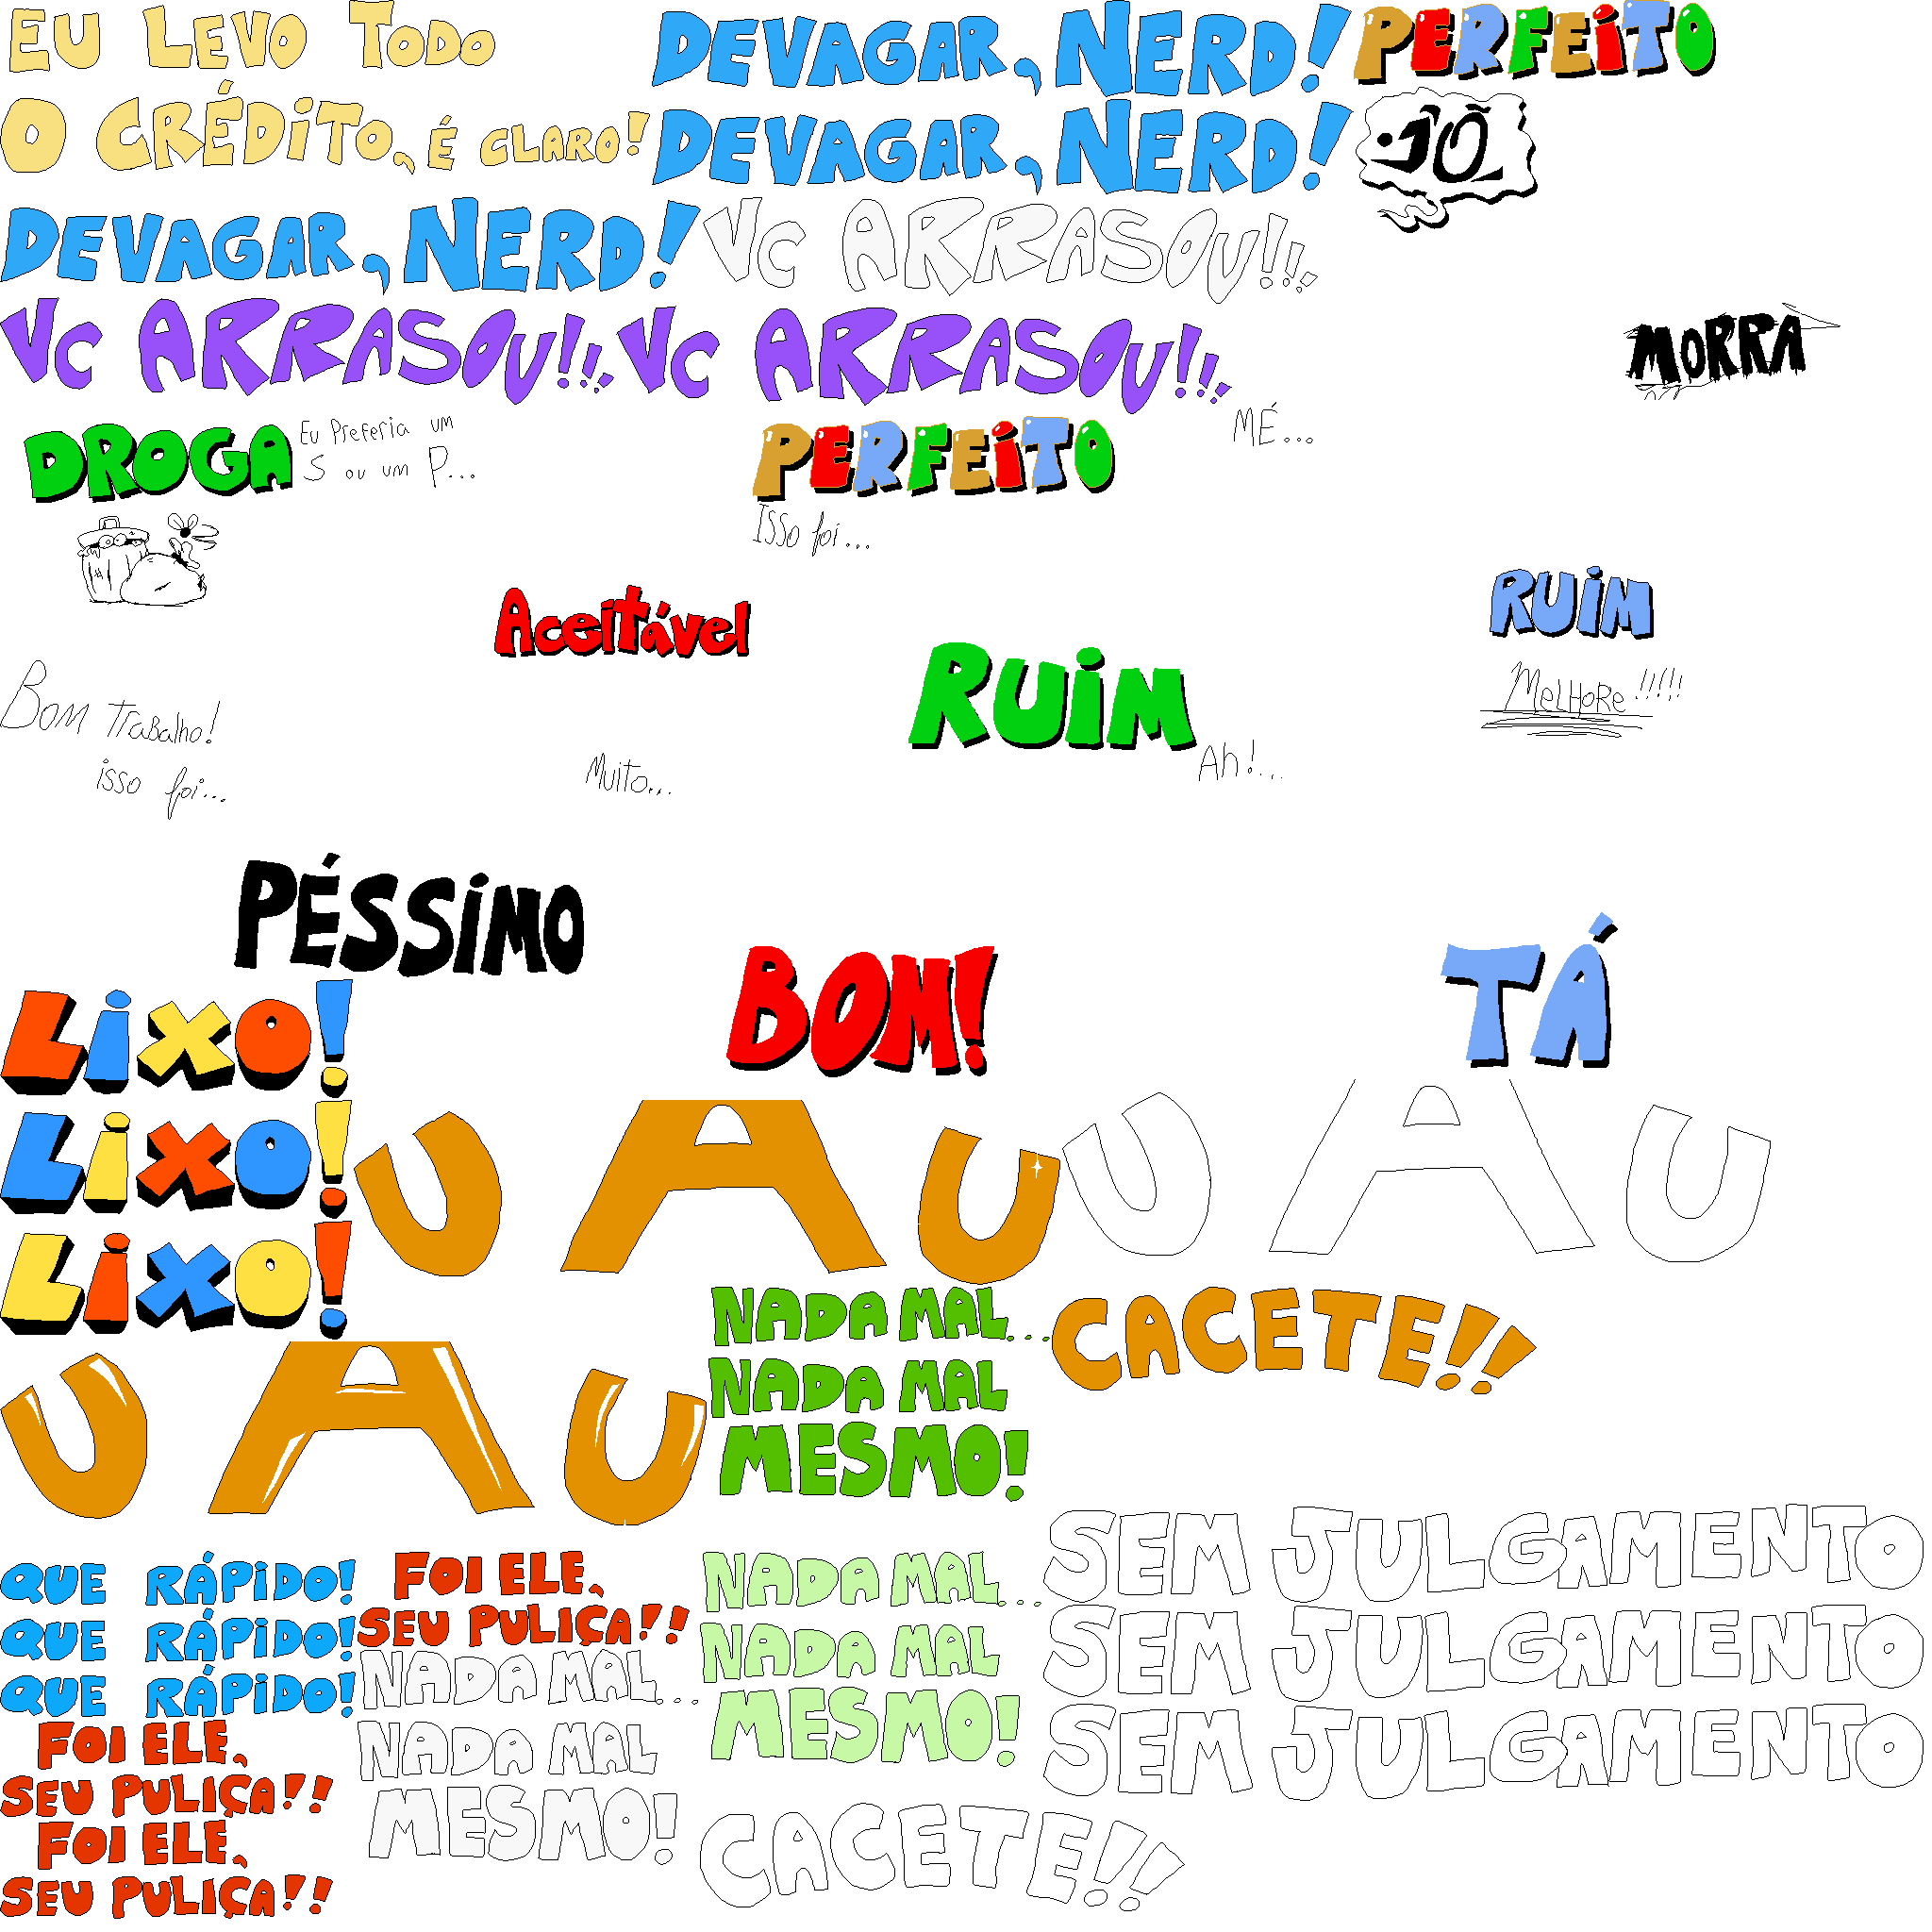 EU LEVO TODO
O CRÉDITO, É CLARO!
DEVAGAR, NERD!
DEVAGAR, NERD!
PERFEITO
DEVAGAR, NERD!
VC ARRASOU!!!
VC ARRASOU!!!
VC ARRASOU!!!
MORRA
DROGA
Eu Preferia um
S ou um P...
PERFEITO
Isso foi...
MÉ...
Aceitável
RUIM
MELHORE!!!!!
RUIM
Ah!...
Bom Trabalho!
isso foi...
Muito...
PÉSSIMO
BOM!
TÁ
LIXO!
LIXO!
LIXO!
UAU
UAU
UAU
NADA MAL...
NADA MAL
MESMO!
CACETE!!
QUE RÁPIDO!
QUE RÁPIDO!
QUE RÁPIDO!
FOI ELE,
SEU PULIÇA!!
FOI ELE,
SEU PULIÇA!!
FOI ELE,
SEU PULIÇA!!
NADA MAL...
NADA MAL
MESMO!
NADA MAL...
NADA MAL
MESMO!
SEM JULGAMENTO
SEM JULGAMENTO
SEM JULGAMENTO
CACETE!!